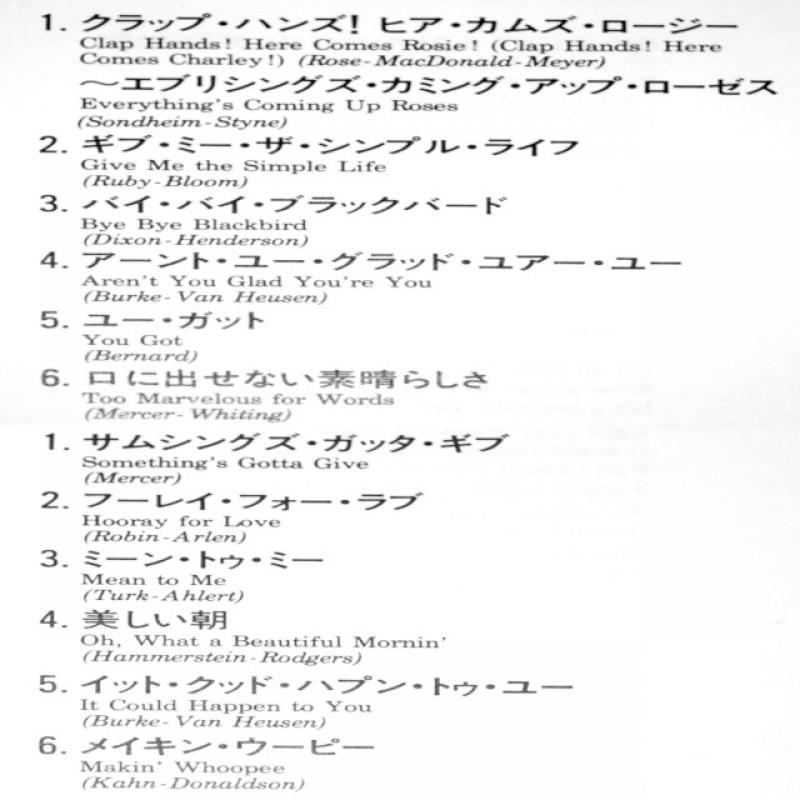 1. クラップ・ハンズ! ヒア・カムズ・ロージー
Clap Hands! Here Comes Rosie! (Clap Hands! Here
Comes Charley!) (Rose-MacDonald-Meyer)
〜エブリシングズ・カミング・アップ・ローゼス
Everything's Coming Up Roses
(Sondheim-Styne)
2. ギブ・ミー・ザ・シンプル・ライフ
Give Me the Simple Life
(Ruby-Bloom)
3. バイ・バイ・ブラックバード
Bye Bye Blackbird
(Dixon-Henderson)
4. アーント・ユー・グラッド・ユアー・ユー
Aren't You Glad You're You
(Burke-Van Heusen)
5. ユー・ガット
You Got
(Bernard)
6. 口に出せない素晴らしさ
Too Marvelous for Words
(Mercer-Whiting)
1. サムシングズ・ガッタ・ギブ
Something's Gotta Give
(Mercer)
2. フーレイ・フォー・ラブ
Hooray for Love
(Robin-Arlen)
3. ミーン・トゥ・ミー
Mean to Me
(Turk-Ahlert)
4. 美しい朝
Oh, What a Beautiful Mornin'
(Hammerstein-Rodgers)
5. イット・クッド・ハプン・トゥ・ユー
It Could Happen to You
(Burke-Van Heusen)
6. メイキン・ウーピー
Makin' Whoopee
(Kahn-Donaldson)